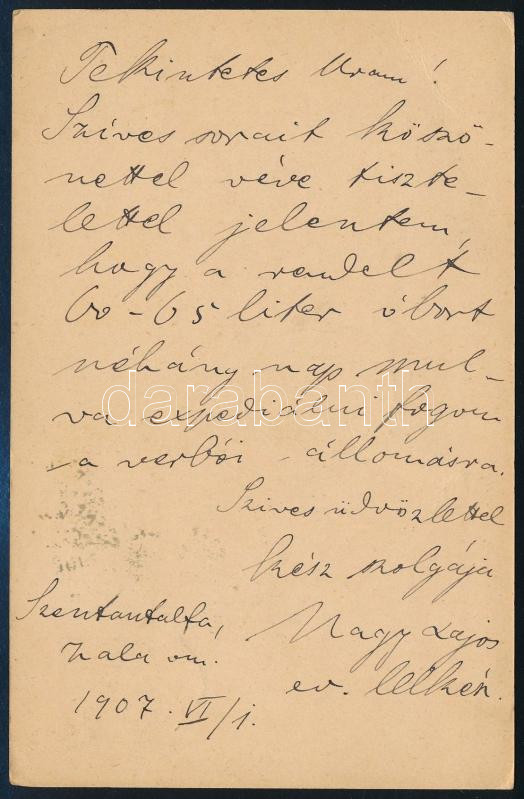 Tekintetes Uram!
Szíves sorait köszö-
nettel véve tiszte-
lettel jelentem,
hogy a rendelt
60-65 liter óbort
néhány nap mul-
va expediálni fogom
a verbói - állomásra.
Szives üdvözlettel
kész szolgája
Szentantalfa,
Nagy Lajos
Zala vm.
ev. lelkész.
1907. VI/1.
darabanth.com